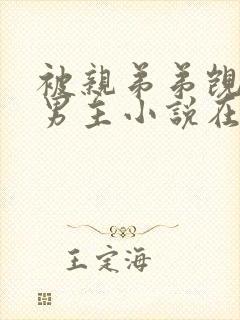 被親弟弟覬
男主小說在
王定海